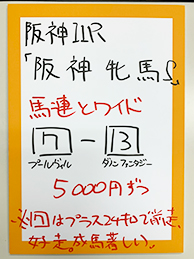 阪神11R
「阪神牝馬S」
馬連とワイド
17 - 13
プールヴィル ダノンファンタジー
5000円ずつ
※17はプラス24キロで前走
好走。成馬著しい。